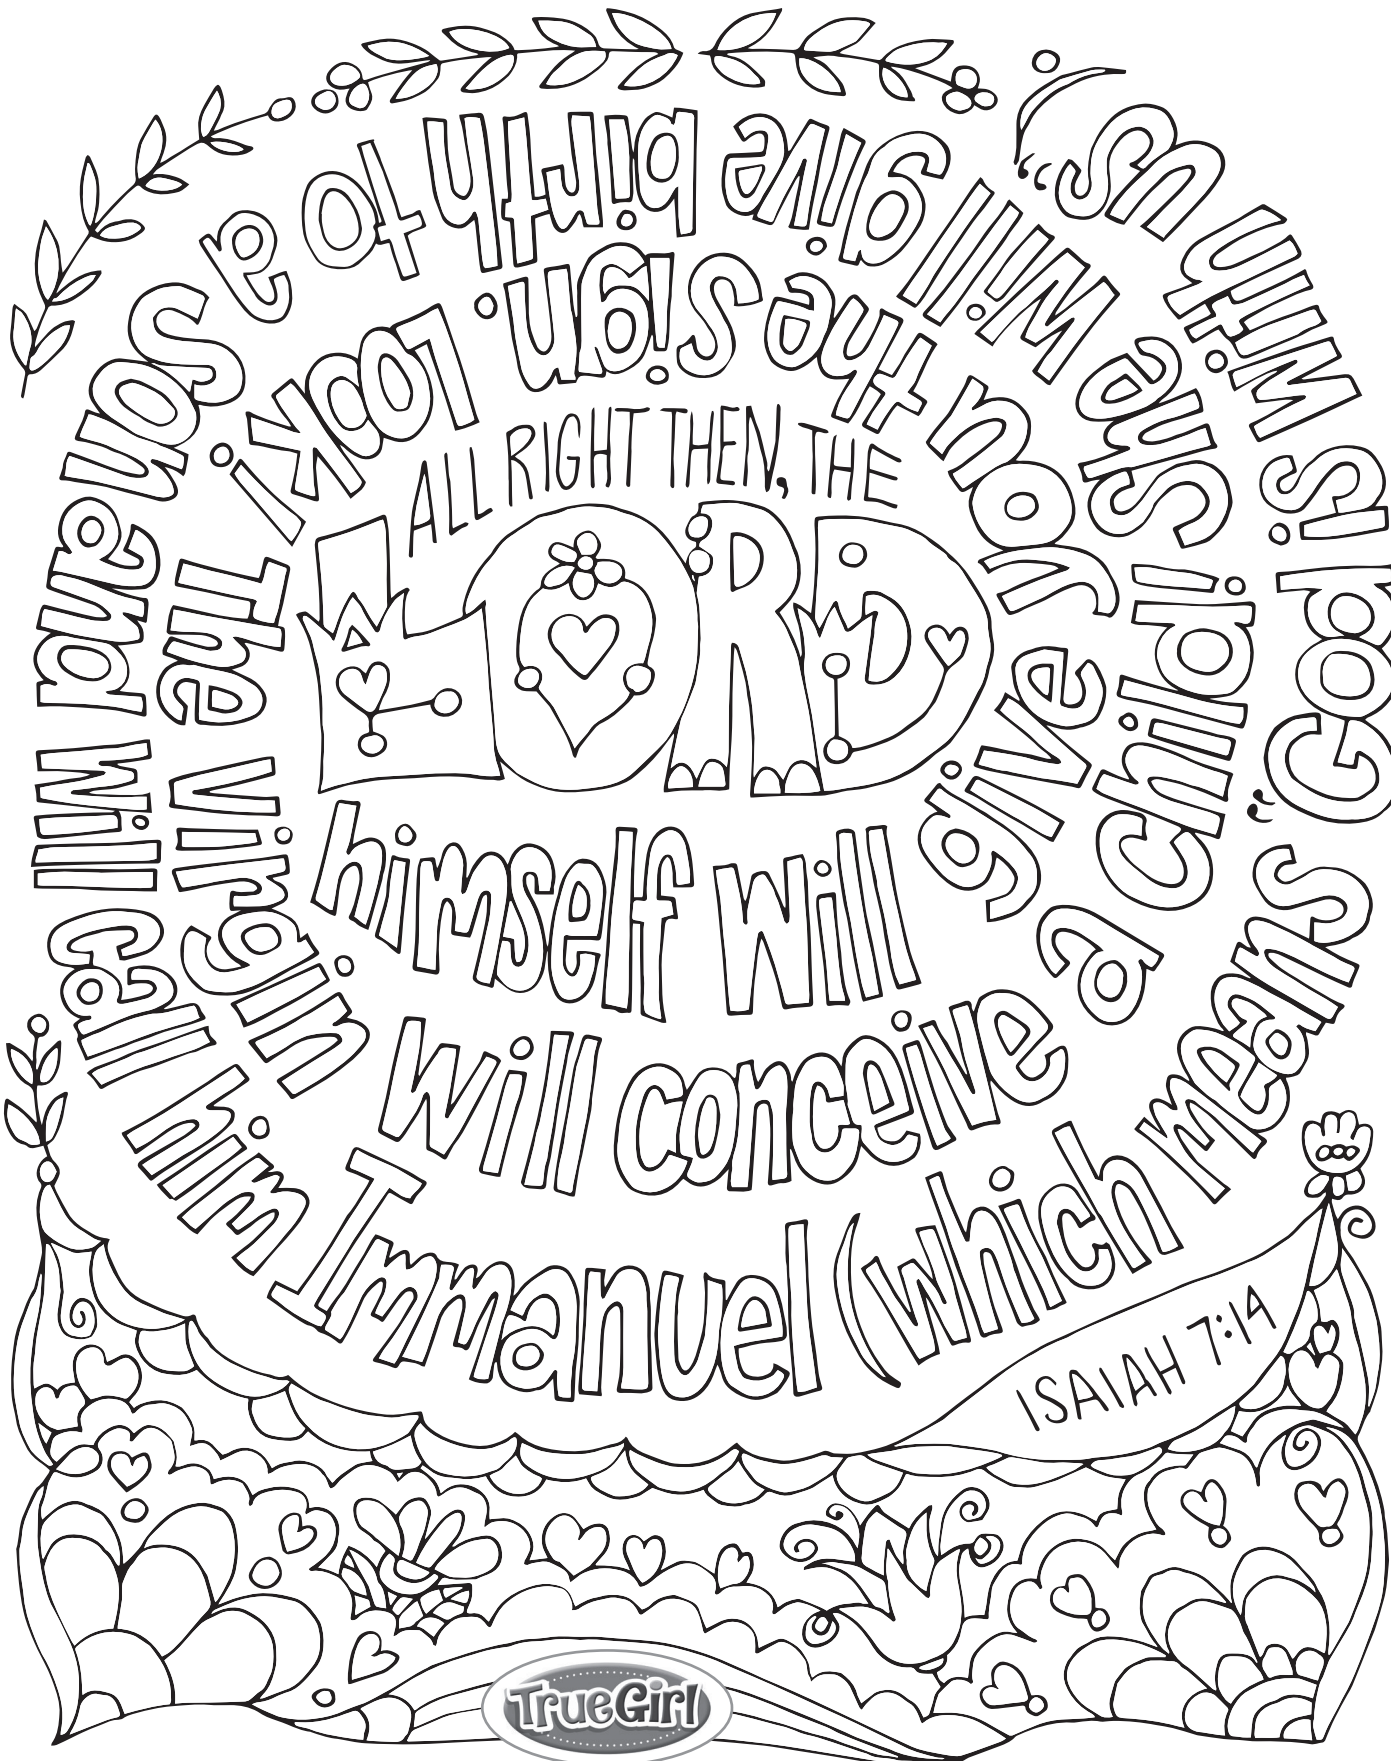 ALL RIGHT THEN, THE
LORD
himself will give you the sign. Look! The virgin will conceive a child! She will give birth to a son and will call him Immanuel (which means “God is with us”)
ISAIAH 7:14
TrueGirl